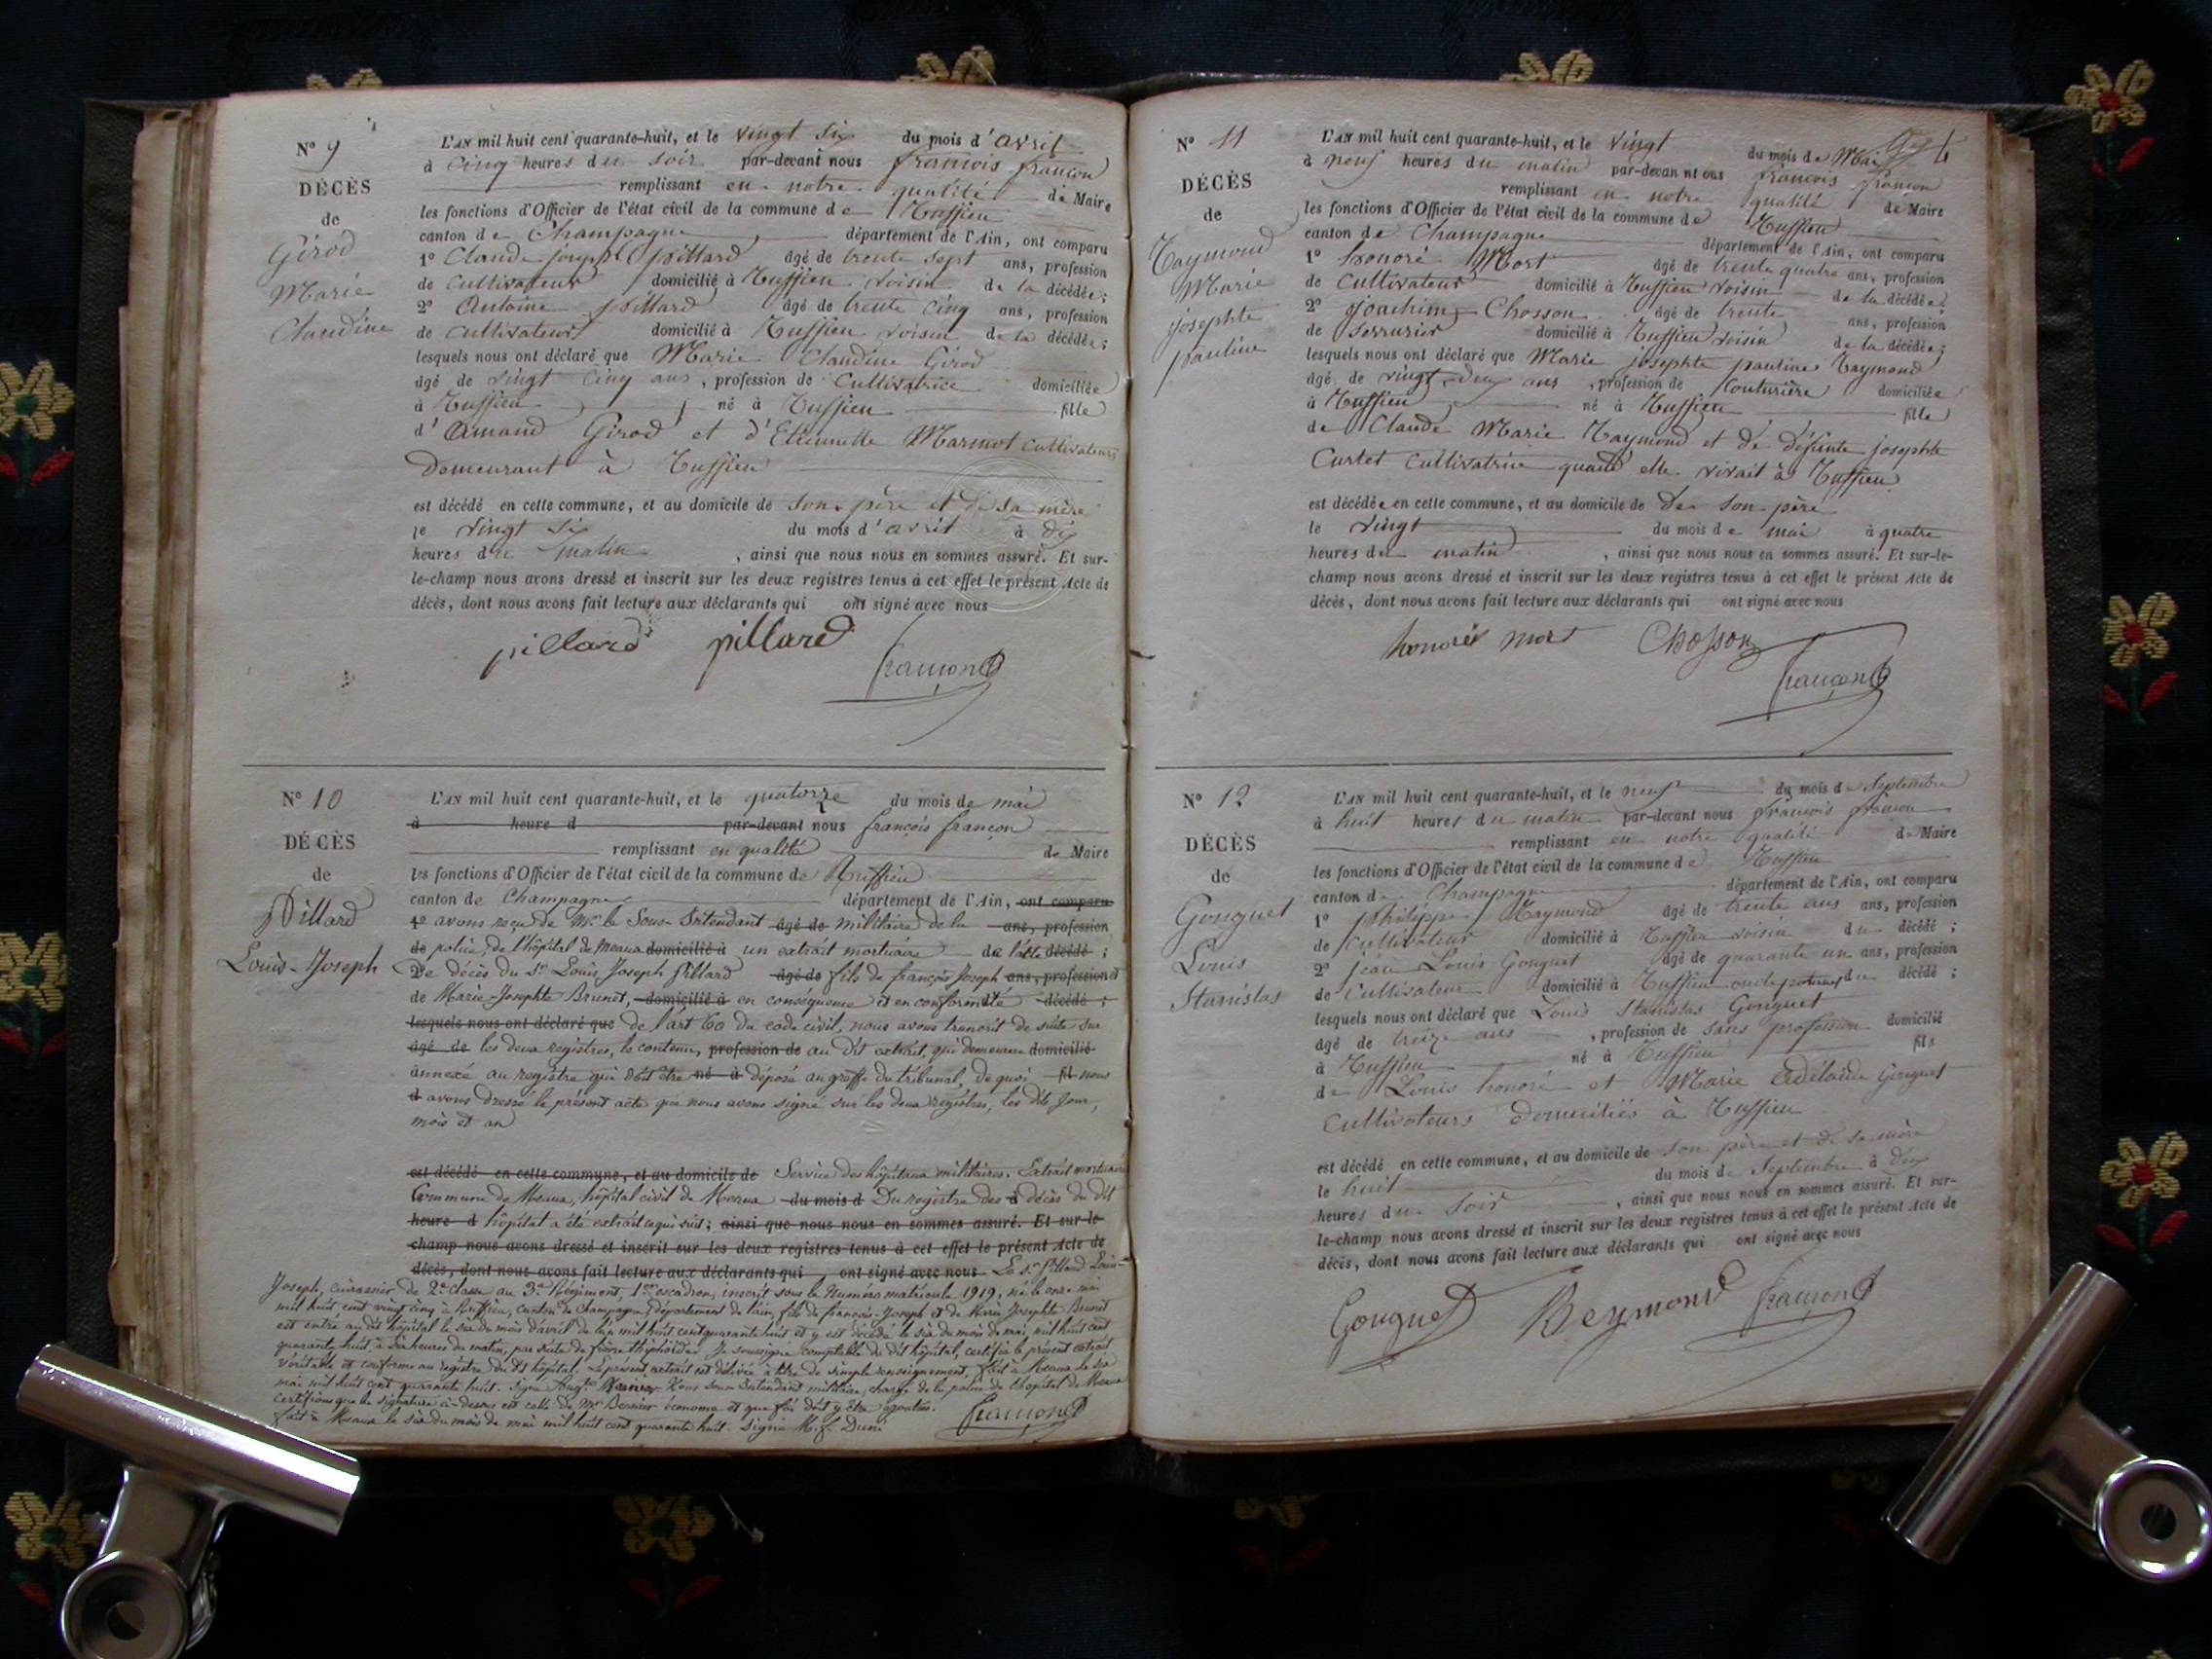 N° 9
DÉCÈS
de
Girod
Marie
Claudine
L'AN mil huit cent quarante-huit, et le vingt six du mois d'avril
à cinq heures du soir par-devant nous françois françon
remplissant en notre qualité de Maire
les fonctions d'Officier de l'état civil de la commune de Ruffieu
canton de Champagne département de l'Ain, ont comparu
1° Claude joseph pillard âgé de trente sept ans, profession
de cultivateur domicilié à Ruffieu voisin de la décédée;
2° Antoine pillard âgé de trente cinq ans, profession
de cultivateur domicilié à Ruffieu voisin de la décédée;
lesquels nous ont déclaré que Marie Claudine Girod
âgé de vingt cinq ans, profession de cultivatrice domiciliée
à Ruffieu né à Ruffieu fille
d'Amand Girod et d'Etiennette Marmot cultivateurs
demeurant à Ruffieu
est décédé en cette commune, et au domicile de son père et de sa mère
le vingt six du mois d'avril à dix
heures du matin, ainsi que nous nous en sommes assuré. Et sur-
le-champ nous avons dressé et inscrit sur les deux registres tenus à cet effet le présent Acte de
décès, dont nous avons fait lecture aux déclarants qui ont signé avec nous
pillard pillard françon
N° 10
DÉCÈS
de
Pillard
Louis-Joseph
L'AN mil huit cent quarante-huit, et le quatorze du mois de mai
à heure d par-devant nous françois françon
remplissant en qualité de Maire
les fonctions d'Officier de l'état civil de la commune de Ruffieu
canton de Champagne département de l'Ain, ont comparu
1° avons reçu de Mr le Sous-Intendant âgé de militaire de la ans, profession
de police, de l'hôpital de Meaux domicilié à un extrait mortuaire de l'acte décédé;
2° de décès du Sr Louis Joseph Pillard âgé de fils de françois Joseph ans, profession et
de Marie-Josephte Brunet, domicilié à en conséquence et en conformité décédé;
lesquels nous ont déclaré que de l'art 60 du code civil, nous avons transcrit de suite sur
âgé de les deux registres, le contenu, profession de au dit extrait, qui demeurera domicilié
annexé au registre qui doit être né à déposé au greffe du tribunal, de quoi fil nous
et avons dressé le présent acte que nous avons signé sur les deux registres, les dits jour,
mois et an
est décédé en cette commune, et au domicile de Service des hôpitaux militaires. Extrait mortuaire
Commune de Meaux, hôpital civil de Meaux du mois d Du registre des à décès du dit
heure d hôpital a été extrait ce qui suit; ainsi que nous nous en sommes assuré. Et sur-le-
champ nous avons dressé et inscrit sur les deux registres tenus à cet effet le présent Acte de
décès, dont nous avons fait lecture aux déclarants qui ont signé avec nous Le Sr Pillard Louis-
Joseph, cuirassier de 2e classe au 3e Régiment, 1er escadron, inscrit sous le Numéro matricule 1919, né le onze mai
mil huit cent vingt cinq à Ruffieu, canton de Champagne, département de l'ain, fils de francois-Joseph et de Marie Josephte Brunet
est entré au dit hôpital le six du mois d'avril de l'an mil huit cent quarante huit et y est décédé le six du mois de mai mil huit cent
quarante huit, à six heures du matin, par suite de fièvre thiphoïde. Je soussigné comptable du dit hôpital, certifie le présent extrait
véritable et conforme au registre du dt hôpital. Le présent extrait est délivré à titre de simple renseignement, fait à Meaux le six
mai mil huit cent quarante huit. Signé Nous Sous-Intendant militaire, chargé de la police de l'hôpital de Meaux
certifions que la signature ci-dessus est celle de Mr Bernier économe et que foi doit y être ajoutée.
fait à Meaux le six du mois de mai mil huit cent quarante huit. Signé françon
N° 11
DÉCÈS
de
Raymond
Marie
josephte
pauline
L'AN mil huit cent quarante-huit, et le vingt du mois de Mai
à neuf heures du matin par-devan nt ous francois françon
remplissant en notre qualité de Maire
les fonctions d'Officier de l'état civil de la commune de Ruffieu
canton de Champagne département de l'Ain, ont comparu
1° honoré Mort âgé de trente quatre ans, profession
de cultivateur domicilié à Ruffieu voisin de la décédée;
2° joachim Chosson âgé de trente ans, profession
de serrurier domicilié à Ruffieu voisin de la décédée;
lesquels nous ont déclaré que Marie josephte pauline Raymond
âgé de vingt deux ans, profession de couturière domiciliée
à Ruffieu né à Ruffieu fille
de Claude Marie Raymond et de défunte josephte
Curtet cultivatrice quand elle vivait à Ruffieu
est décédée en cette commune, et au domicile de de son père
le vingt du mois de mai à quatre
heures du matin, ainsi que nous nous en sommes assuré. Et sur-le-
champ nous avons dressé et inscrit sur les deux registres tenus à cet effet le présent Acte de
décès, dont nous avons fait lecture aux déclarants qui ont signé avec nous
honoré mort Chosson françon
N° 12
DÉCÈS
de
Gouguet
Louis
Stanislas
L'AN mil huit cent quarante-huit, et le neuf du mois de Septembre
à huit heures du matin par-devant nous francois françon
remplissant en notre qualité de Maire
les fonctions d'Officier de l'état civil de la commune de Ruffieu
canton de Champagne département de l'Ain, ont comparu
1° Philippe Raymond âgé de trente ans ans, profession
de cultivateur domicilié à Ruffieu voisin du décédé;
2° jean Louis Gouguet âgé de quarante un ans, profession
de cultivateur domicilié à Ruffieu oncle paternel du décédé;
lesquels nous ont déclaré que Louis Stanislas Gouguet
âgé de treize ans, profession de sans profession domicilié
à Ruffieu né à Ruffieu fils
de Louis honoré et Marie Adélaïde Gouguet
cultivateurs domiciliés à Ruffieu
est décédé en cette commune, et au domicile de son père et de sa mère
le huit du mois de Septembre à dix
heures du soir, ainsi que nous nous en sommes assuré. Et sur-
le-champ nous avons dressé et inscrit sur les deux registres tenus à cet effet le présent Acte de
décès, dont nous avons fait lecture aux déclarants qui ont signé avec nous
Gouguet Reymond françon